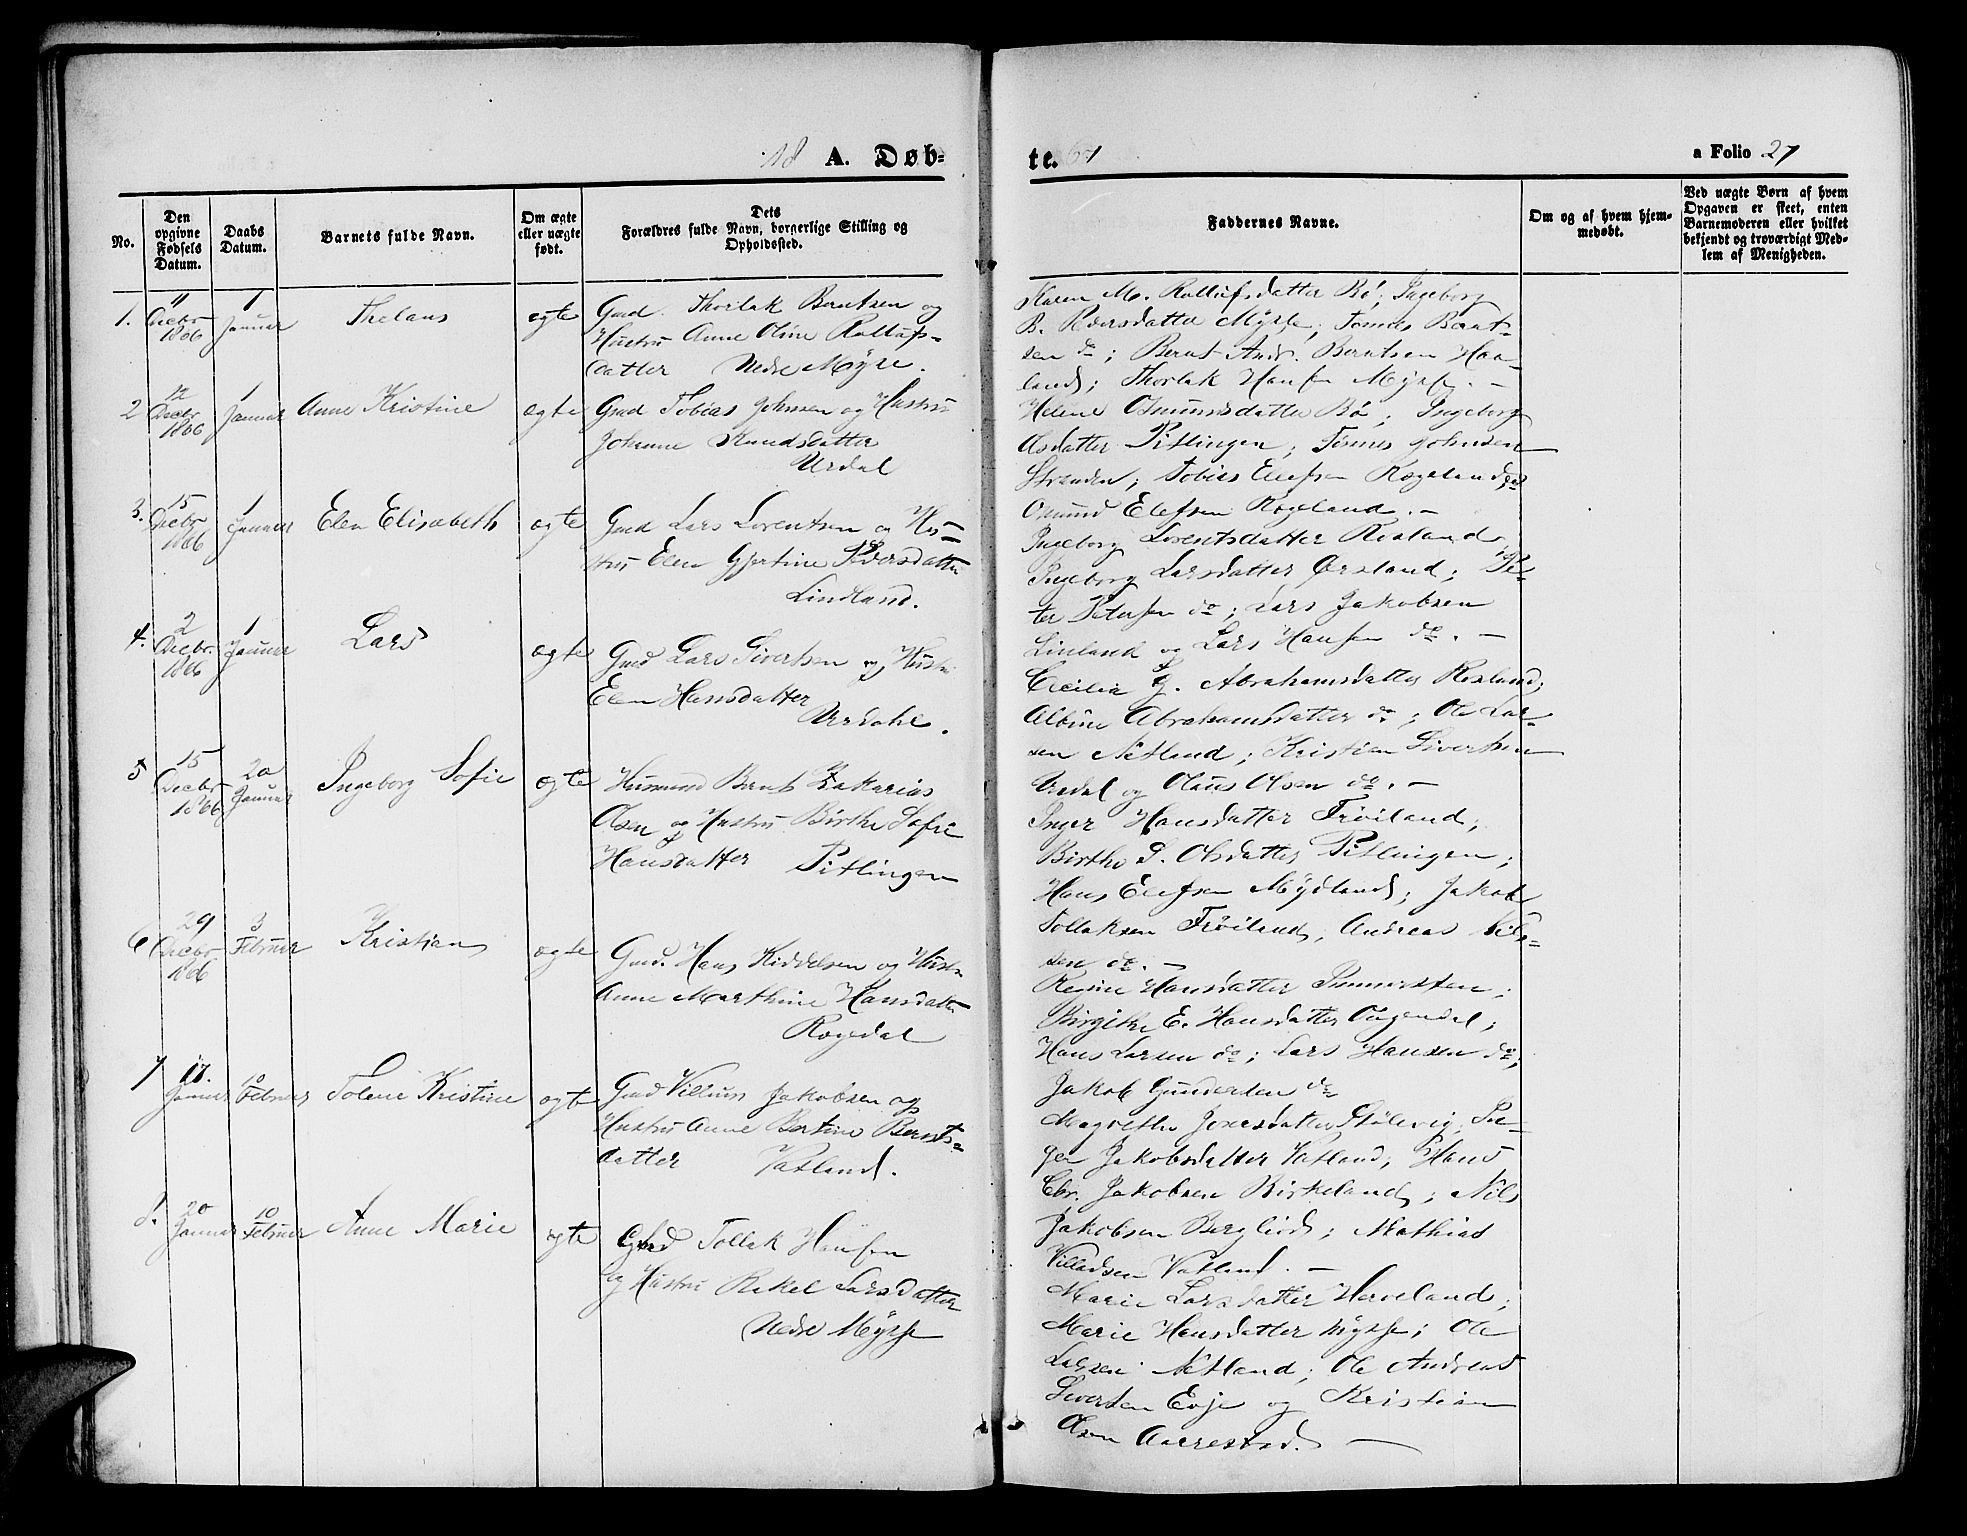 18 A. Døb-
te. 67
a Folio 27
No.
Den opgivne Fødsels Datum.
Daabs Datum.
Barnets fulde Navn.
Om ægte eller uægte født.
Dets Forældres fulde Navn, borgerlige Stilling og Opholdssted.
Faddernes Navne.
Om og af hvem hjemmedøbt.
Ved uægte Børn af hvem Opgaven er skeet, enten Barnemoderen eller hvilket bekjendt og troværdigt Medlem af Menigheden.
1. 11 Decbr 1866 1 Januar Thelaus ægte Gmd. Thorlak Berntsen og
Hustru Anne Oline Rollufs-
datter Nedre Mÿsse.
Karen M. Rollufsdatter Bø; Ingeborg
B. Pedersdatter Mÿsse; Tønnes Bernt-
sen do; Bernt Andr. Berntsen Haa-
land; Thorlak Hansen Mÿsse. —
2 12 Decbr 1866 1 Januar Anne Kristine ægte Gmd Tobias Johnsen og Hustru
Johanne Knudsdatter
Urdal
Helene Osmundsdatter Bø; Ingeborg
Olsdatter Pitlingen; Tønnes Johnsen
Stranden; Tobias Elefsen Rogeland og
Osmund Elefsen Rogeland. —
3. 15 Decbr 1866 1 Januar Elen Elisabeth ægte Gmd Lars Lorentsen og Hu-
stru Elen Gjertine Pedersdatter
Lindland.
Ingeborg Lorentsdatter Rosland,
Ingeborg Larsdatter Ørsland; Pe-
ter Petersen do; Lars Jakobsen
Linland og Lars Hansen do. —
4. 2 Decbr. 1866 1 Januar Lars ægte Gmd Lars Sivertsen og Hustru
Elen Hansdatter
Urdahl.
Cecilia G. Abrahamsdatter Rosland;
Albine Abrahamsdatter do; Ole Lar-
sen Netland; Kristian Sivertsen
Urdal og Olaus Olsen do. —
5 15 Decbr 1866 20 Januar Ingeborg Sofie ægte Husmand Bernt Zakarias
Olsen og Hustru Birthe Sofie
Hansdatter Pitlingen
Inger Hansdatter Frøiland;
Birthe S. Olsdatter Pitlingen;
Hans Elefsen Mydland; Jakob
Tollaksen Frøiland; Andreas Nils-
sen do. —
6 29 Decbr 1866 3 Februar Kristian ægte Gmd. Hans Kiddelsen og Hustru
Anne Marthine Hansdatter
Rogedal
Regine Hansdatter
Birgithe E. Hansdatter
Hans Larsen do; Lars Hansen do;
Jakob Gundersen do
7 17. Januar 10 Februar Tolene Kristine ægte Gmd Villum Jakobsen og
Hustru Anne Bertine Bernts-
datter Vatland.
Magrethe Jonasdatter Stølevig; In-
ger Jakobsdatter Vatland; Hans
Chr. Jakobsen Birkeland; Nils
Jakobsen Berglid; Mathias
Villadsen Vatland. —
8. 20 Januar 10 Februar Anne Marie ægte Gmd Tollak Hansen
og Hustru Rakel Larsdatter
Nedre Mÿsse
Marie Larsdatter Herveland;
Marie Hansdatter Mÿsse; Ole
Larsen Netland; Ole Andreas
Sivertsen Evje og Kristian
Olsen Aarrestad. —